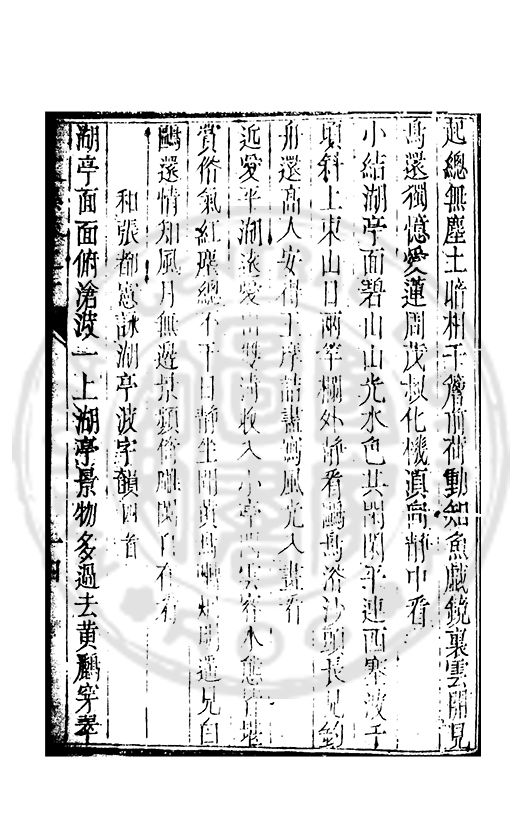 起總無塵土暗相干簷前荷動知魚戲鏡裏雲開見
鳥還獨憶愛蓮周茂叔化機滇向靜中看
小結湖亭面碧山山光水色共閒閒平連西塞波千
頃斜上東山日兩竿檻外靜看鷗鳥浴沙頭長見釣
舟還高人安得王摩詰畫寫風光入畫看
近愛平湖遠愛山雙清收入小亭間雲容水態皆堪
賞俗氣紅塵總不干日靜坐聞黃鳥 煙開遙見白
鷗還情知風月無邊景頻倚雕闌自在看
和張都憲詠湖亭波字韻四首
湖亭面面俯滄波一上湖亭景物多過去黃鸝穿翠